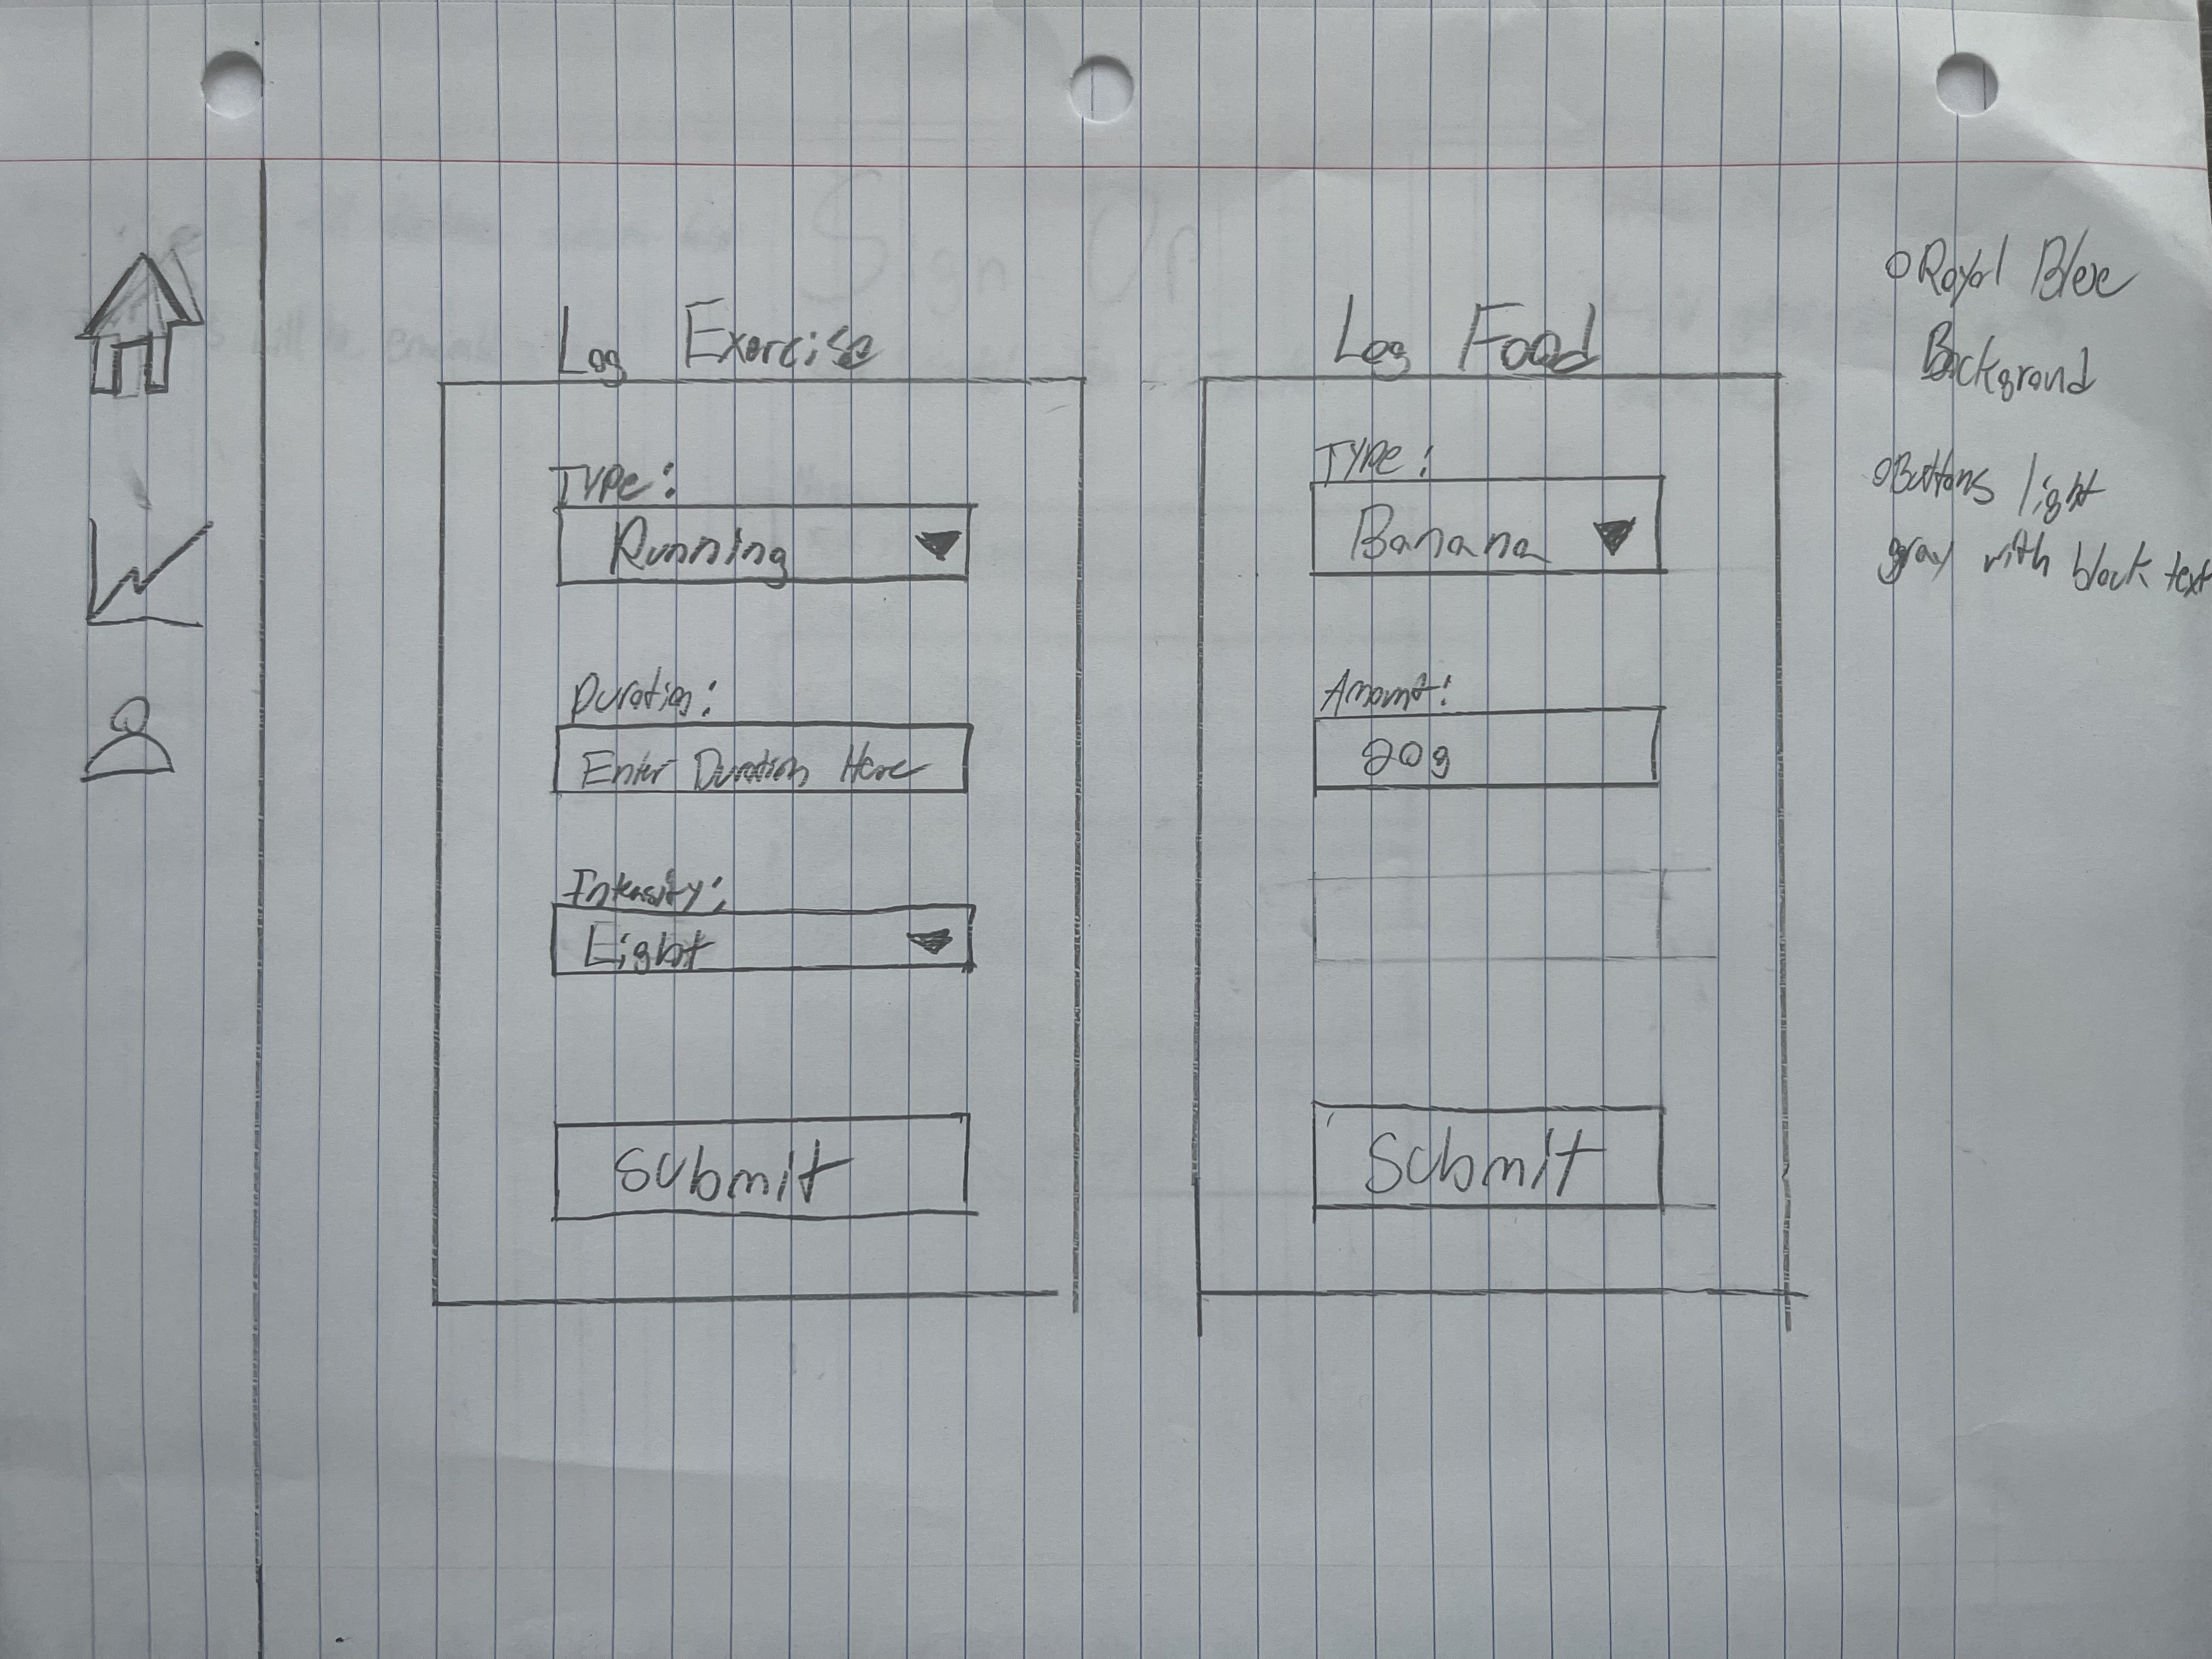 Log Exercise
Type:
Running
Duration:
Enter Duration Here
Intensity:
Light
Submit
Log Food
Type:
Banana
Amount:
20g
Submit
Royal Blue
Background
Buttons light
gray with black text
Sign On